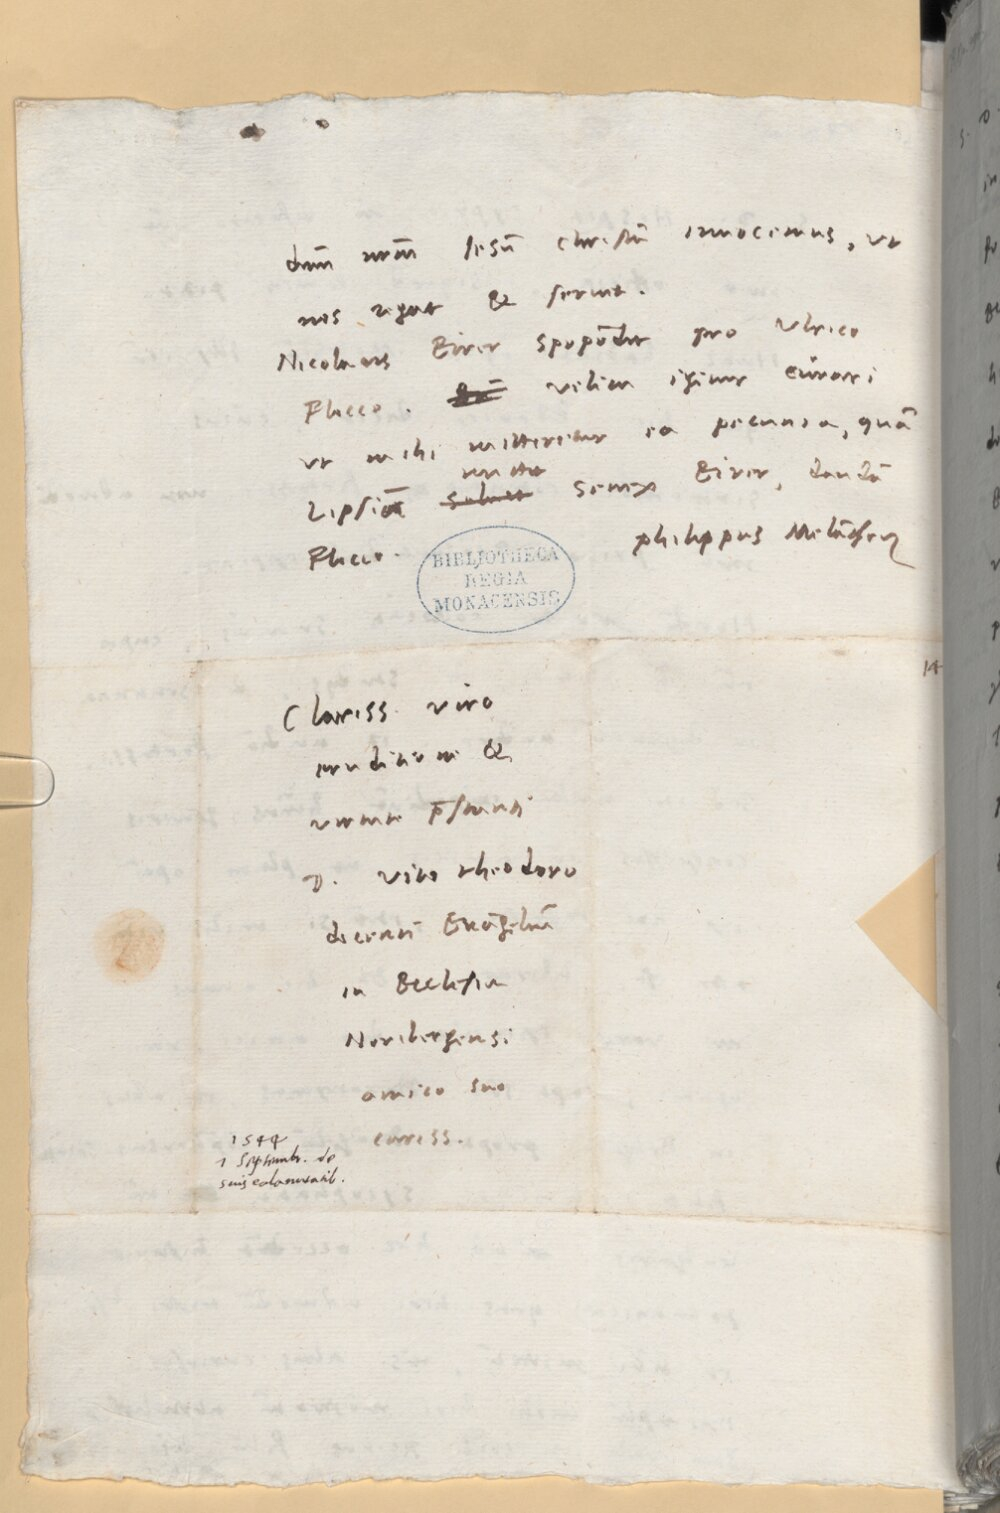 dnm nrm Iesu Christu inuocemus, vt
nos regat & seruet.
Nicolaus Eirer spopodit pro Vlrico
Flicco. velim igitur curari
vt mihi mitteretur ea pecunia, quā
mittit
Lipsiā soluet senex Eirer, dandā
Flicco.
philippus Melāth
BIBLIOTHECA
REGIA
MONACENSIS
14
Clariss. viro
eruditione &
virtute p̄stanti
D. Vito theodoro
docenti Euāgeliū
in Ecclesia
Noribergensi
amico suo
cariss.
1544
1 Septemb. de
suis calamitatib.